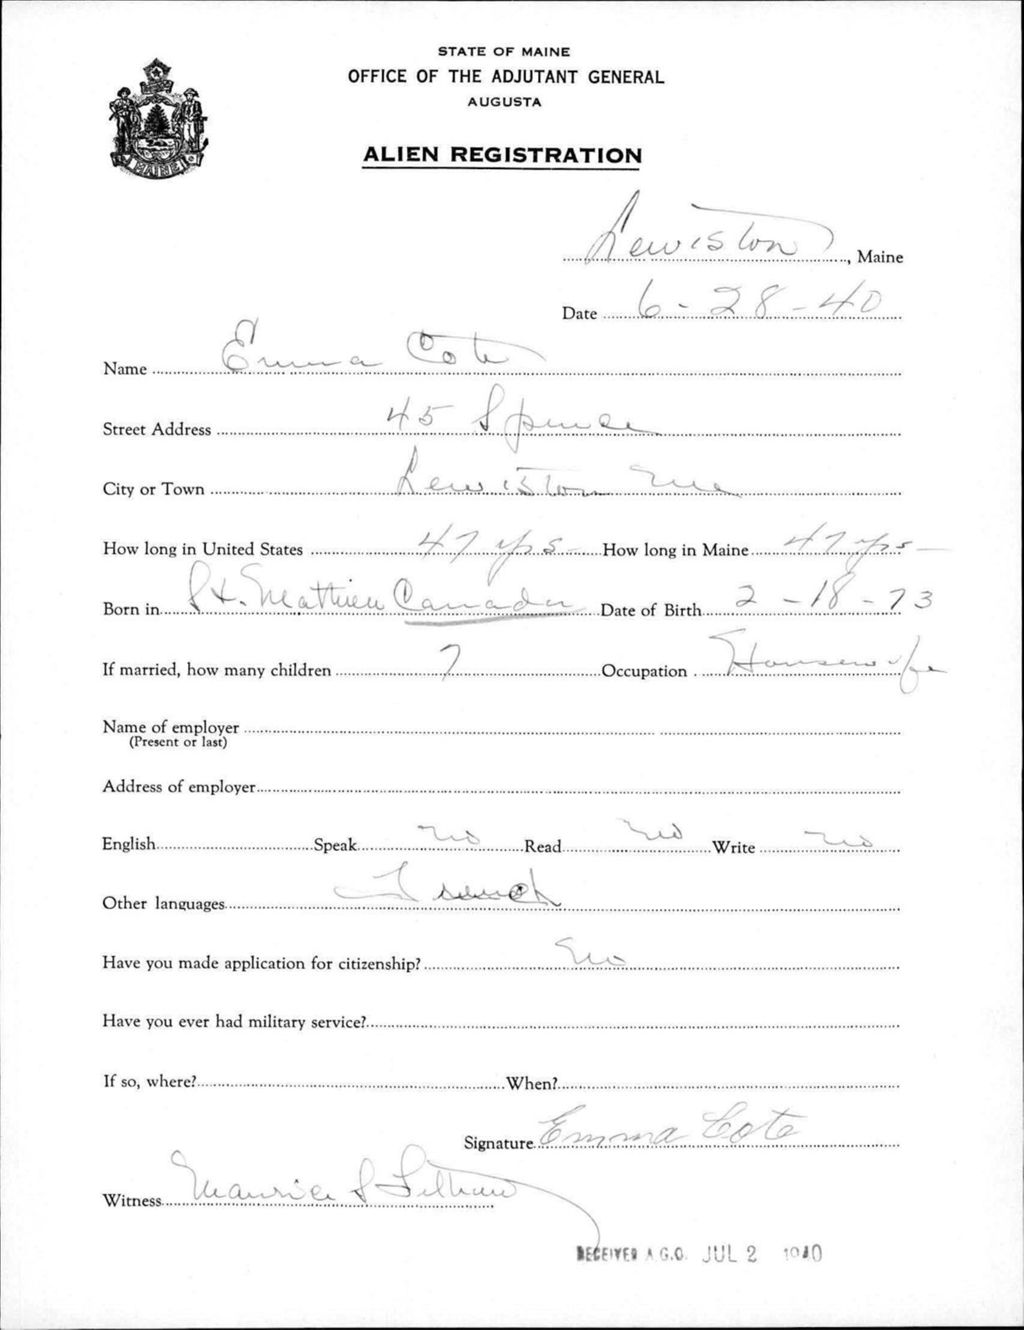 STATE OF MAINE
OFFICE OF THE ADJUTANT GENERAL
AUGUSTA
ALIEN REGISTRATION
MAINE
Lewiston, Maine
Date 6-28-40
Name Emma Cote
Street Address 45 Spruce
City or Town Lewiston Me
How long in United States 47 yrs How long in Maine 47 yrs
Born in St. Mathieu Canada Date of Birth 2-18-73
If married, how many children 7 Occupation Housewife
Name of employer
(Present or last)
Address of employer
English Speak no Read no Write no
Other languages French
Have you made application for citizenship? no
Have you ever had military service?
If so, where? When?
Signature Emma Cote
Witness Maurice
RECEIVED A.G.O. JUL 2 1940